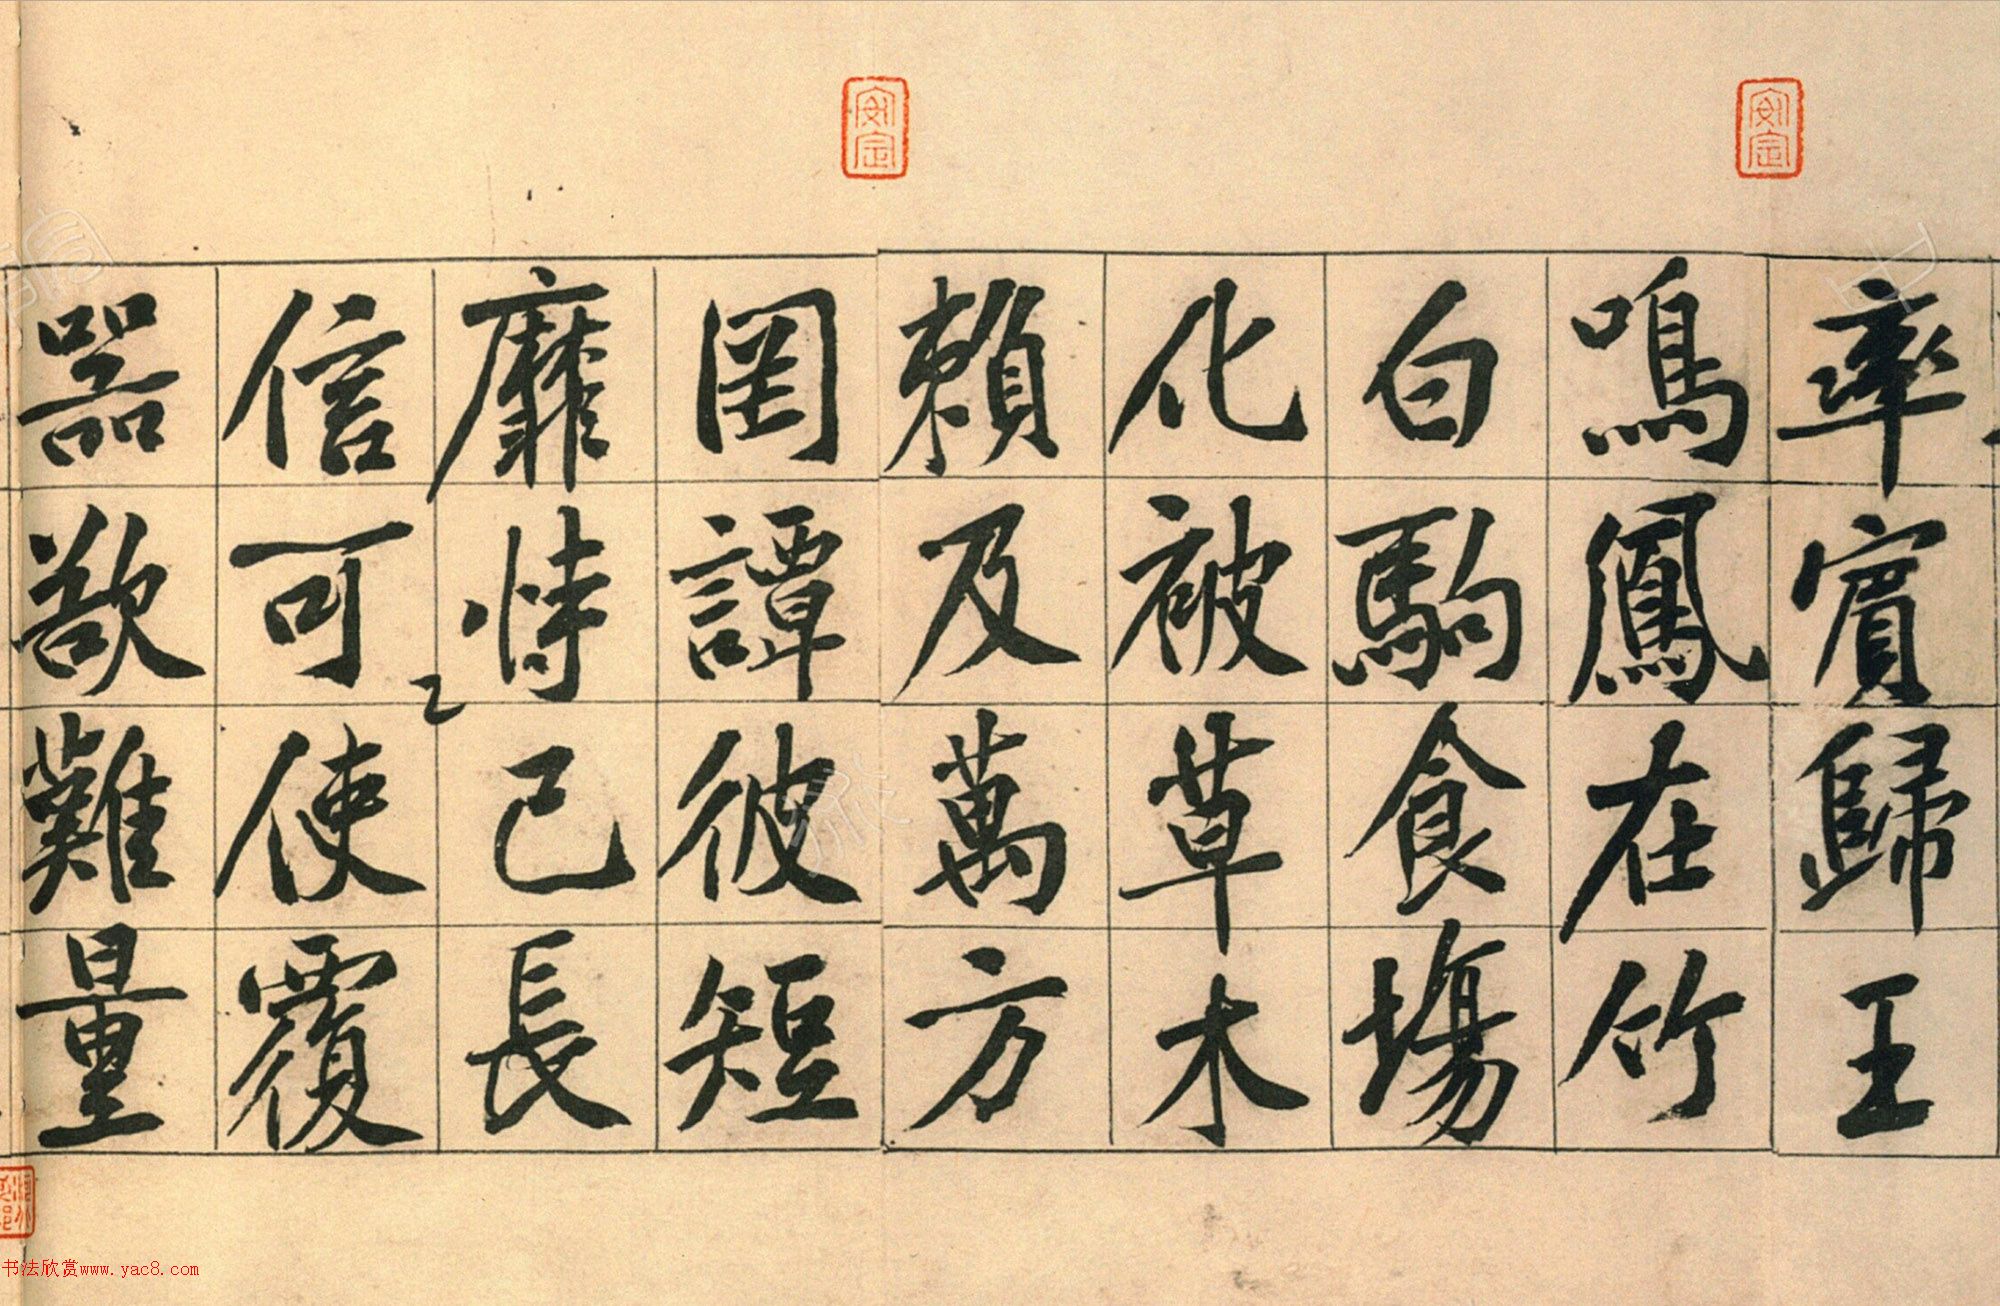 率賓歸王
鳴鳳在竹
白駒食塲
化被草木
賴及萬方
罔譚彼短
靡恃己長
信可使覆
器欲難量
安定
安定
书法欣赏www.yac8.com